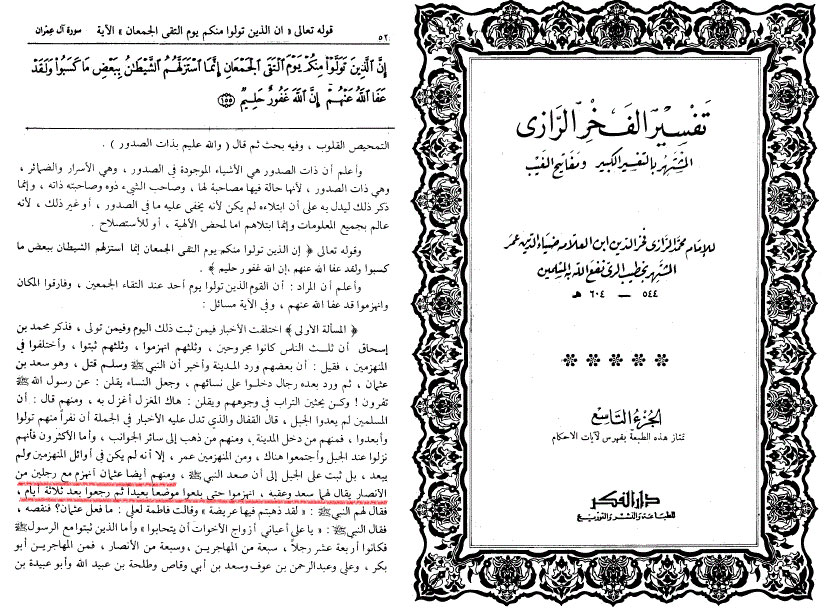 ٥٢
قوله تعالى « ان الذين تولوا منكم يوم التقى الجمعان » الآية
سورة آل عمران
إِنَّ الَّذِينَ تَوَلَّوْا مِنكُمْ يَوْمَ الْتَقَى الْجَمْعَانِ إِنَّمَا اسْتَزَلَّهُمُ الشَّيْطَانُ بِبَعْضِ مَا كَسَبُوا وَلَقَدْ
عَفَا اللَّهُ عَنْهُمْ إِنَّ اللَّهَ غَفُورٌ حَلِيمٌ ١٥٥
التمحيص القلوب ، وفيه بحث ثم قال ( والله عليم بذات الصدور ) .
وأعلم أن ذات الصدور هي الأشياء الموجودة في الصدور ، وهي الأسرار والضمائر ،
وهي ذات الصدور ، لأنها حالة فيها مصاحبة لها ، وصاحب الشيء ذوه وصاحبته ذاته ، وإنما
ذكر ذلك ليدل به على أن ابتلاءه لم يكن لأنه يخفى عليه ما في الصدور ، أو غير ذلك ، لأنه
عالم بجميع المعلومات وإنما ابتلاهم اما لمحض الألهية ، أو للأستصلاح .
وقوله تعالى ﴿ إن الذين تولوا منكم يوم التقى الجمعان إنما استزلهم الشيطان ببعض ما
كسبوا ولقد عفا الله عنهم ،إن الله غفور حليم ﴾ .
وأعلم أن المراد : أن القوم الذين تولوا يوم أحد عند التقاء الجمعين ، وفارقوا المكان
وانهزموا قد عفا الله عنهم ، وفي الآية مسائل :
﴿ المسألة الأولى ﴾ اختلفت الأخبار فيمن ثبت ذلك اليوم وفيمن تولى ، فذكر محمد بن
إسحاق أن ثلث الناس كانوا مجروحين ، وثلثهم انهزموا ، وثلثهم ثبتوا ، وأختلفوا في
المنهزمين ، فقيل : أن بعضهم ورد المدينة وأخبر أن النبي ﷺ قتل ، وهو سعد بن
عثمان ، ثم ورد بعده رجال دخلوا على نسائهم ، وجعل النساء يقلن : عن رسول الله ﷺ
تفرون ! وكن يحثين التراب في وجوههم ويقلن : هاك المغزل أغزل به ، ومنهم قال : أن
المسلمين لم يعدوا الجبل ، قال القفال والذي تدل عليه الأخبار في الجملة أن نفراً منهم تولوا
وأبعدوا ، فمنهم من دخل المدينة ، ومنهم من ذهب إلى سائر الجوانب ، وأما الأكثرون فأنهم
نزلوا عند الجبل وأجتمعوا هناك ، ومن المنهزمين عمر ، إلا أنه لم يكن في أوائل المنهزمين ولم
يبعد ، بل ثبت على الجبل إلى أن صعد النبي ﷺ ، ومنهم أيضا عثمان أنهزم مع رجلين من
الأنصار يقال لهما سعد وعقبه ، انهزموا حتى بلغوا موضعا بعيداً ثم رجعوا بعد ثلاثة أيام ،
فقال لهم النبي ﷺ : « لقد ذهبتم فيها عريضة » وقالت فاطمة لعلي : ما فعل عثمان؟ فنقصه ،
فقال النبي ﷺ : « يا على أعياني أزواج الأخوات أن يتحابوا » وأما الذين ثبتوا مع الرسول ﷺ
فكانوا أربعة عشر رجلاً ، سبعة من المهاجرين وسبعة من الأنصار ، فمن المهاجرين أبو
بكر ، وعلي وعبد الرحمن بن عوف وسعد بن أبي وقاص وطلحة بن عبيد الله وأبو عبيدة بن
تَفْسِير الفَخْر الرّازى
المشتهر بالتفسير الكبير ومفاتيح الغيب
للإمام محمد الرازى فخر الدين ابن العلامه ضياء الدين عمر
المشتهر بخطيب الرى نفع الله به المسلمين
٥٤٤ — ٦٠٤ هـ
الجزء التاسع
تمتاز هذه الطبعة بفهرس لآيات الاحكام
دار الفكر
للطباعة والنشر والتوزيع